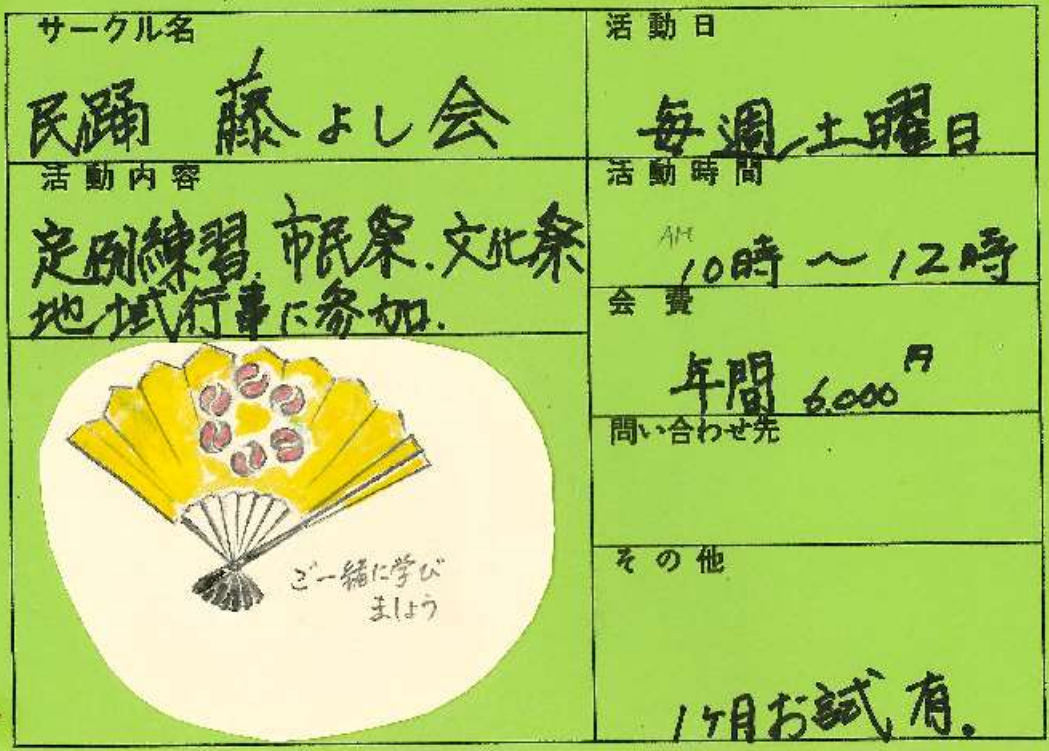 サークル名
民踊 藤よし会
活動内容
定例練習.市民祭.文化祭
地域行事に参加.
ご一緒に学び
ましょう
活動日
毎週土曜日
活動時間
AM 10時～12時
会費
年間 6,000円
問い合わせ先
その他
1ヶ月お試し有.